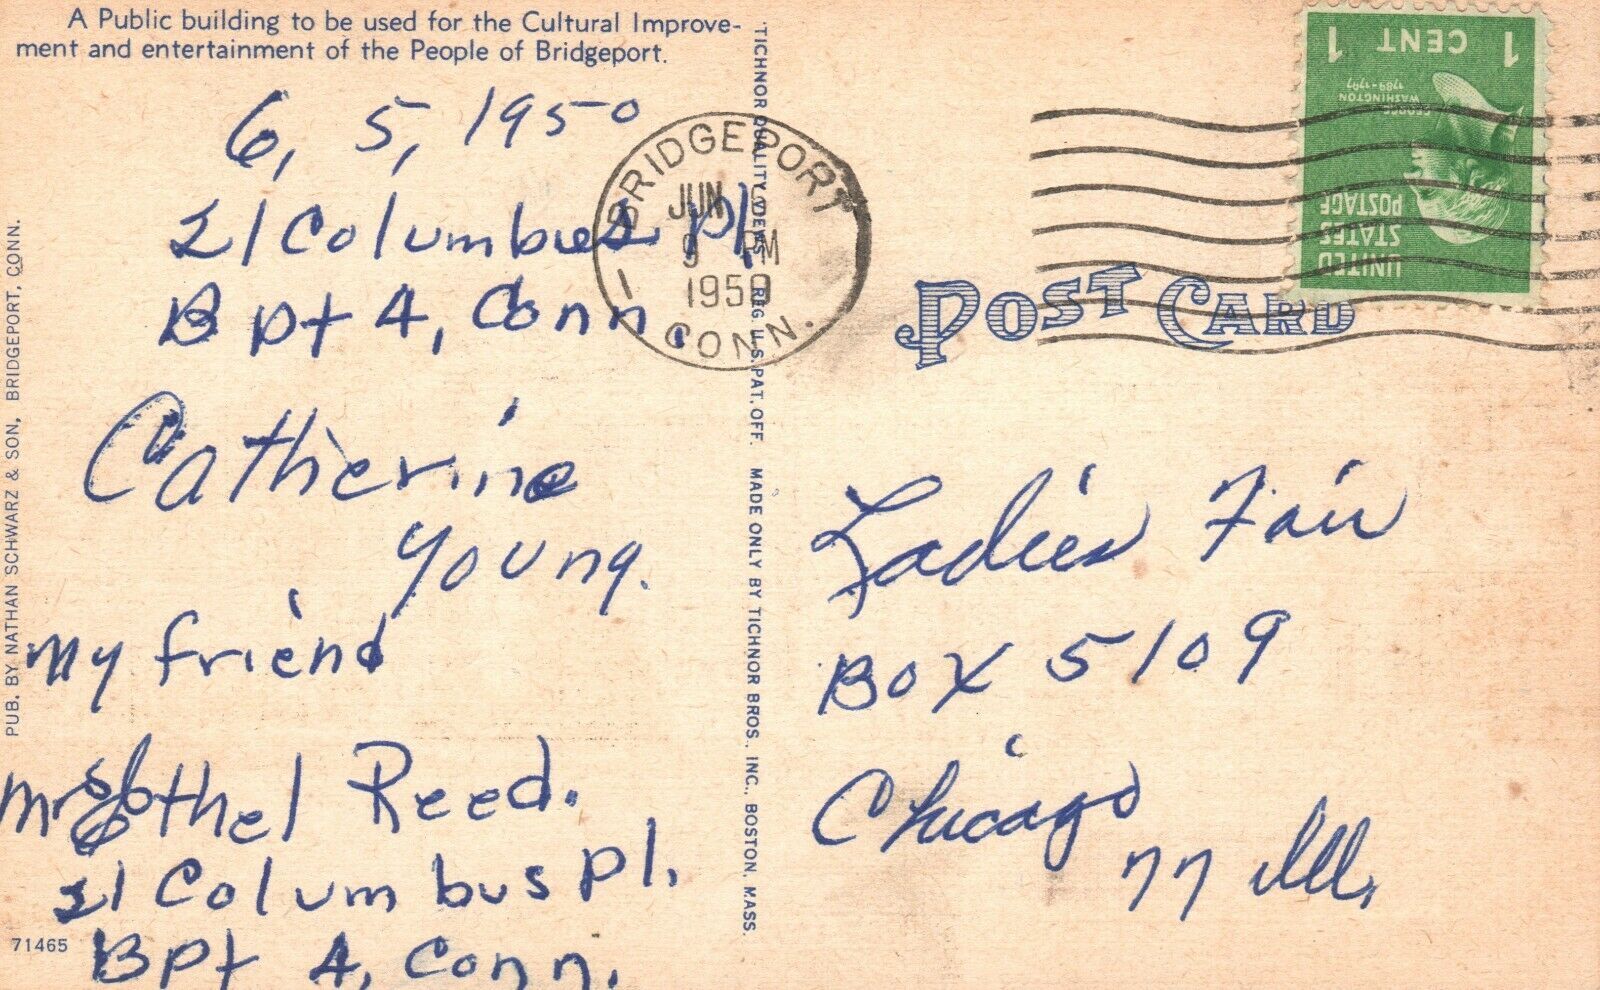 A Public building to be used for the Cultural Improve-
ment and entertainment of the People of Bridgeport.
6, 5, 1950
21 Columbus Pl,
Bpt 4, Conn,
Catherine
Young.
My friend
Mrs Ethel Reed.
21 Columbus pl.
Bpt 4, Conn.
71465
PUB. BY NATHAN SCHWARZ & SON, BRIDGEPORT, CONN.
TICHNOR QUALITY VIEWS REG. U.S. PAT. OFF. MADE ONLY BY TICHNOR BROS., INC., BOSTON, MASS.
BRIDGEPORT
JUN
9 PM
1950
CONN.
1
POST CARD
UNITED
STATES
POSTAGE
GEORGE
WASHINGTON
1789-1797
1 CENT 1
Ladies Fair
Box 5109
Chicago
77 Ill.